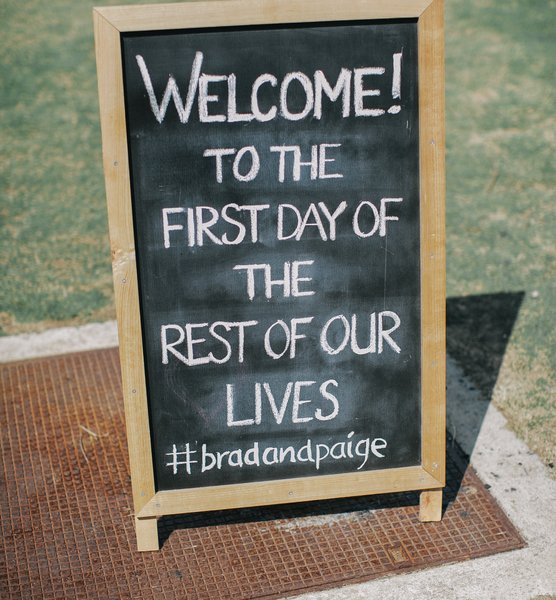 WELCOME!
TO THE
FIRST DAY OF
THE
REST OF OUR
LIVES
#bradandpaige